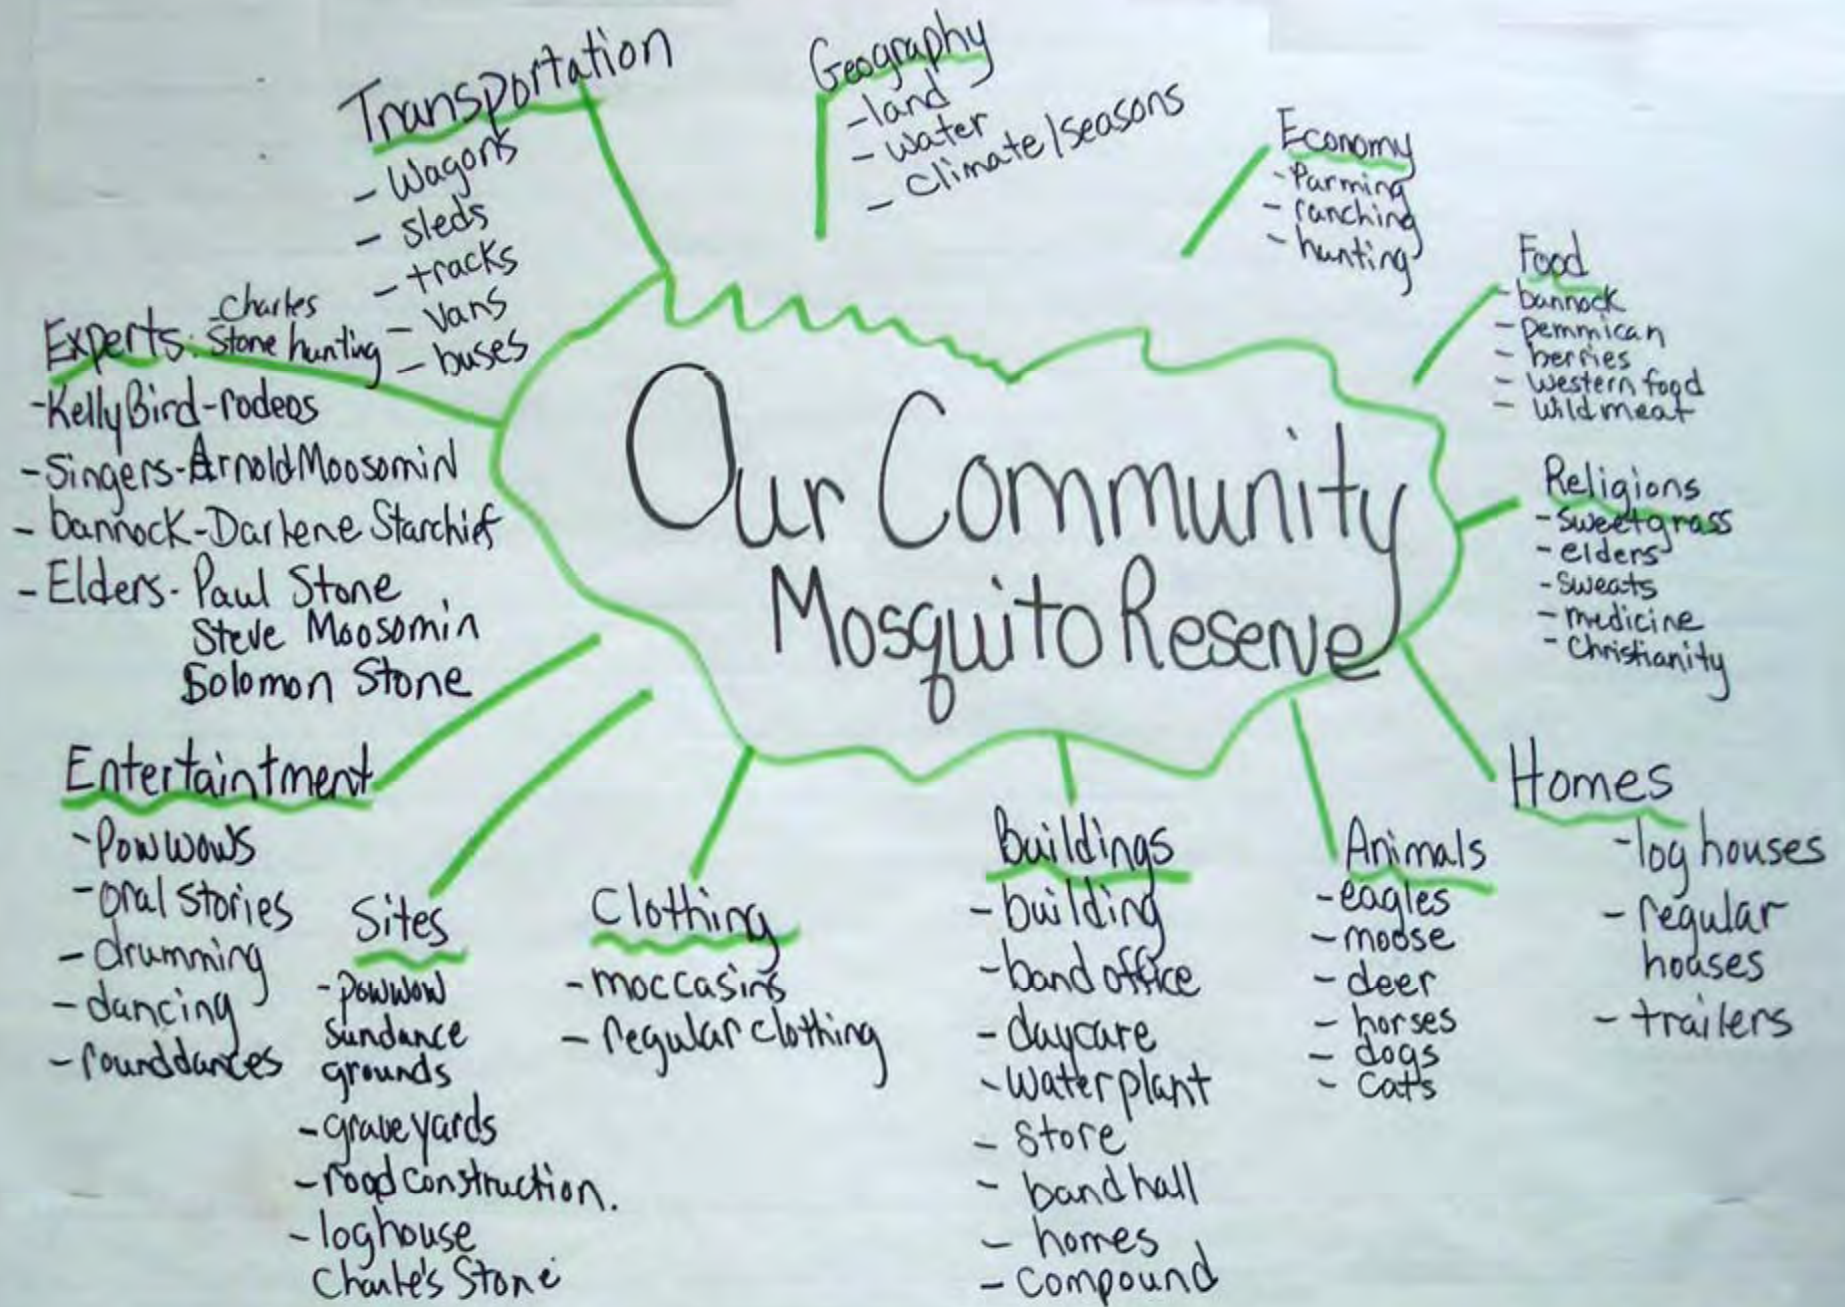 Our Community
Mosquito Reserve
Transportation
- Wagons
- sleds
- tracks
- Vans
- buses
Geography
- land
- water
- Climate/seasons
Economy
- Farming
- ranching
- hunting
Food
- bannock
- pemmican
- berries
- western food
- wild meat
Religions
- Sweetgrass
- elders
- sweats
- medicine
- Christianity
Homes
- log houses
- regular
houses
- trailers
Animals
- eagles
- moose
- deer
- horses
- dogs
- cats
Buildings
- building
- band office
- daycare
- waterplant
- store
- band hall
- homes
- compound
Clothing
- moccasins
- regular clothing
Sites
- powwow
sundance
grounds
- graveyards
- road construction.
- loghouse
Charle's Stone
Entertaintment
- Powwows
- oral stories
- drumming
- dancing
- rounddances
Experts: Charles
Stone hunting
- Kelly Bird - rodeos
- Singers - Arnold Moosomin
- bannock - Darlene Starchief
- Elders - Paul Stone
Steve Moosomin
Solomon Stone